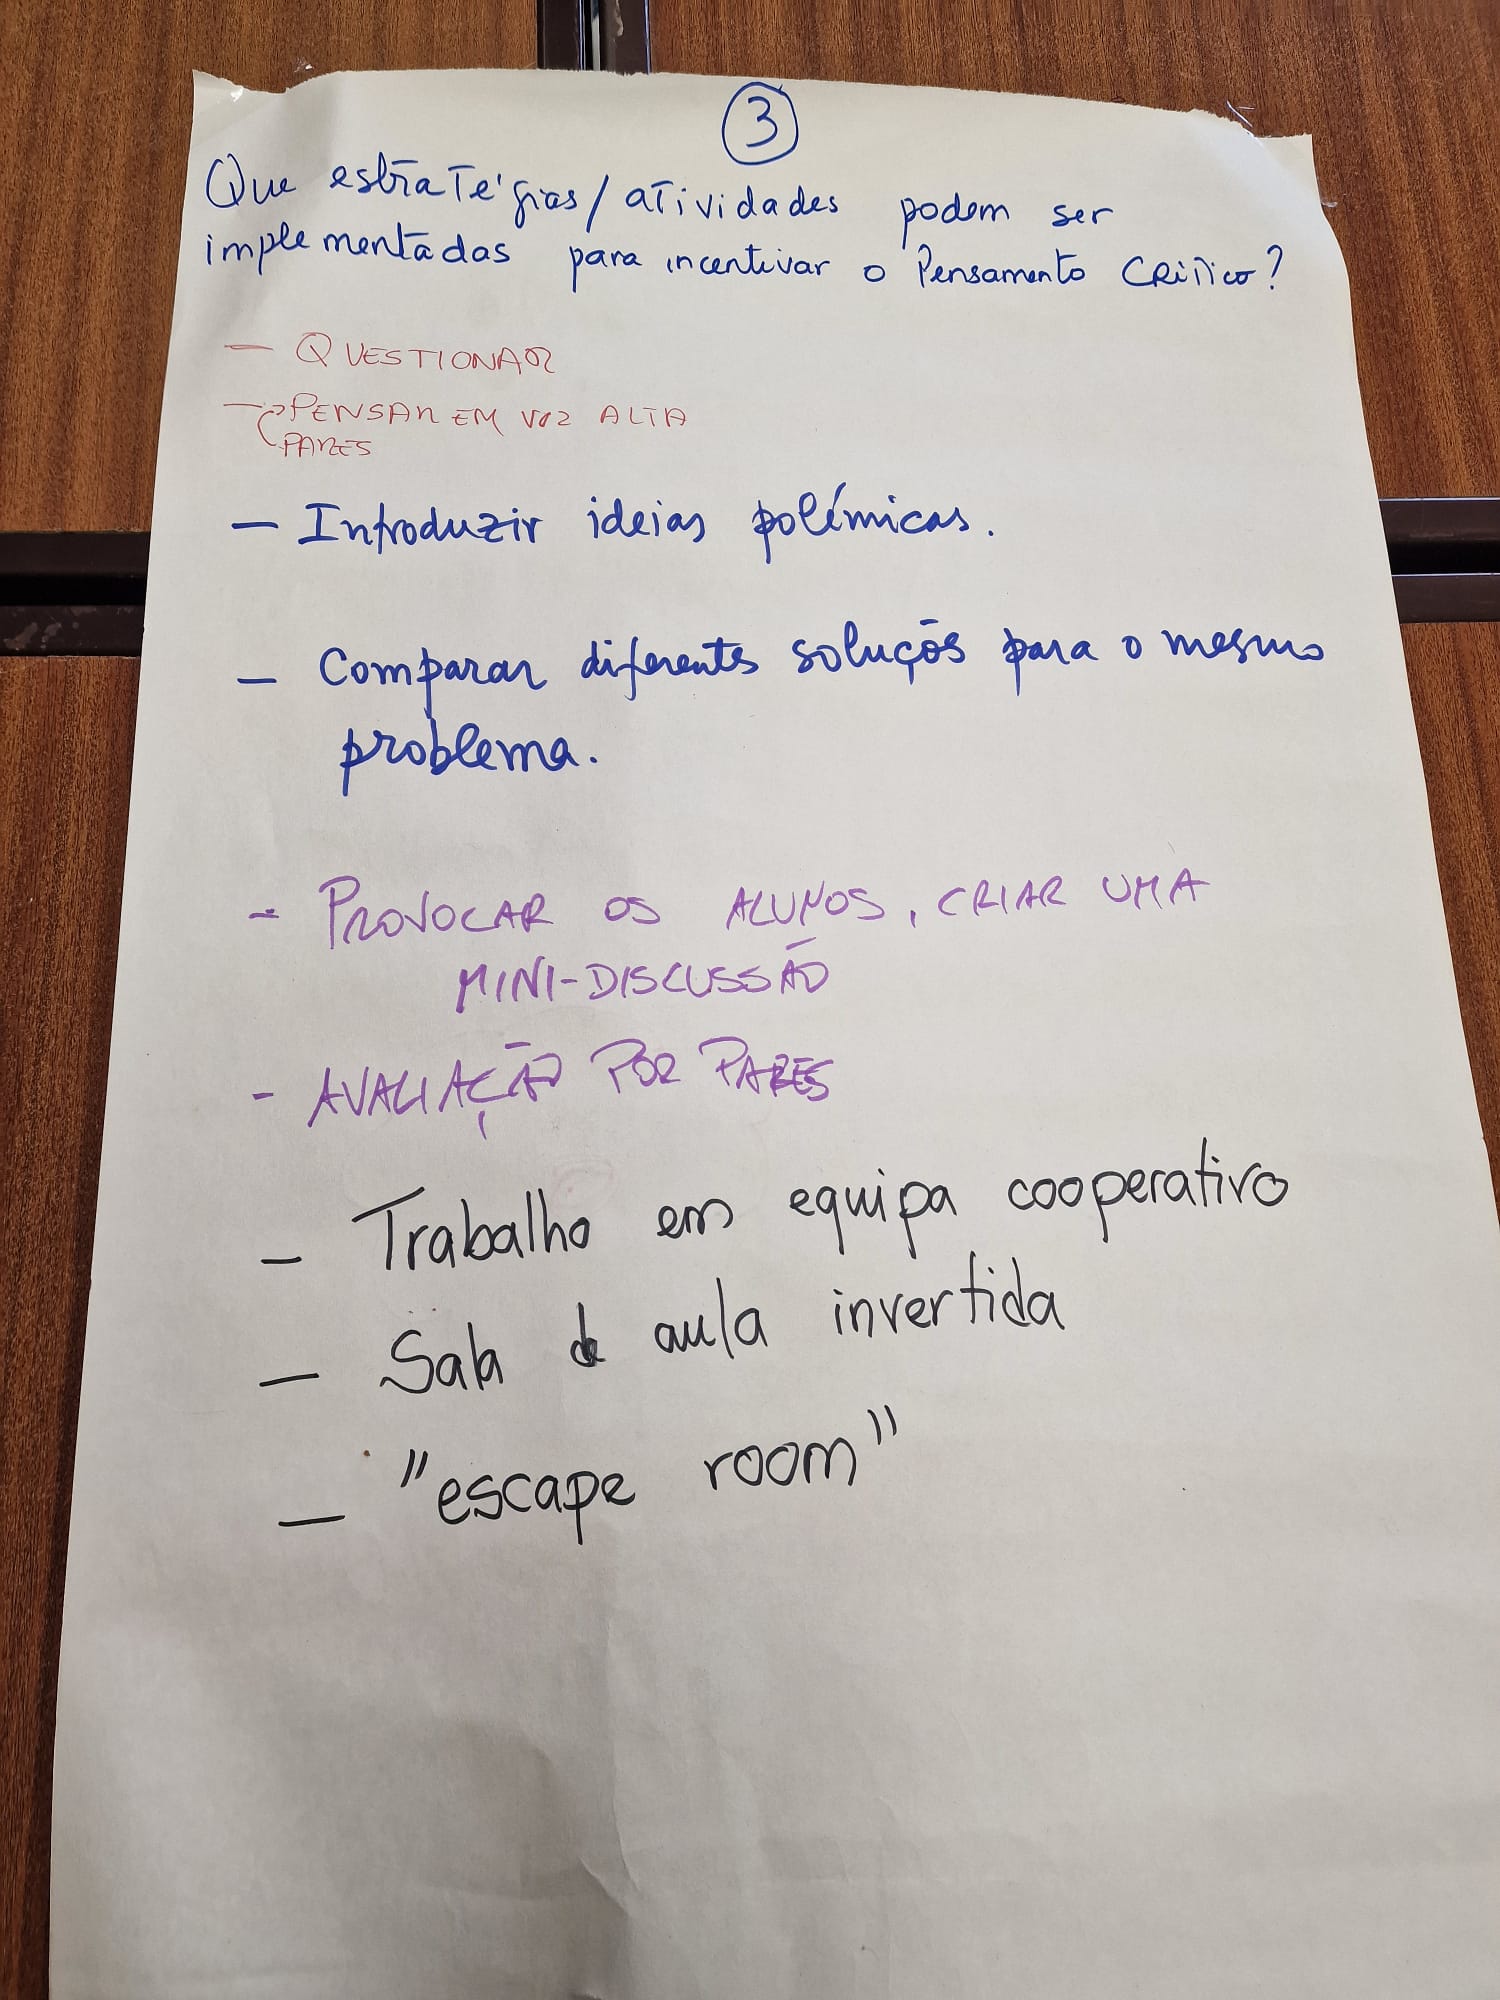 3
Que estratégias/atividades podem ser
implementadas para incentivar o Pensamento Crítico?
- QUESTIONAR
- PENSAR EM VOZ ALTA
PARES
- Introduzir ideias polémicas.
- Comparar diferentes soluções para o mesmo
problema.
- PROVOCAR OS ALUNOS, CRIAR UMA
MINI-DISCUSSÃO
- AVALIAÇÃO POR PARES
- Trabalho em equipa cooperativo
- Sala de aula invertida
- "escape room"